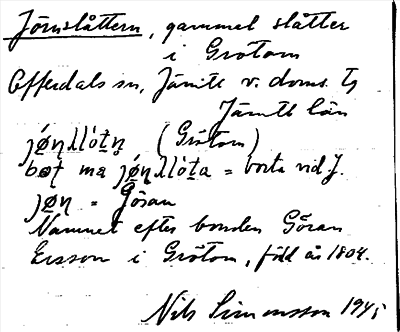 Jörnslåttern, gammal slåtter
i Grötom
Offerdals sn, Jämtl. v. doms. ts
Jämtl län
(Grötom)
= borta vid J.
= Göran
Namnet efter bonden Göran
Ersson i Grötom, född år 1804.
Nils Simonsson 1945